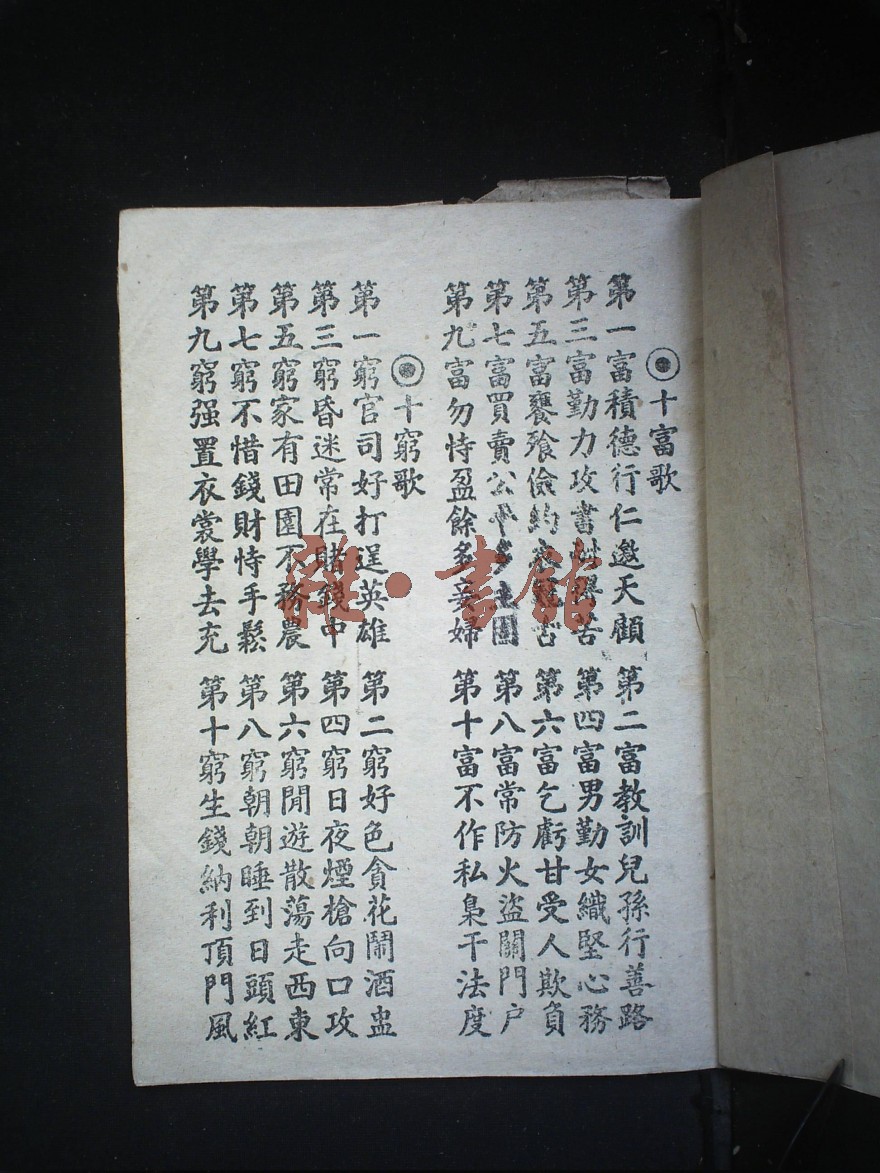 十富歌
第一富積德行仁邀天顧
第二富教訓兒孫行善路
第三富勤力攻書
第四富男勤女織堅心務
第五富饔飱儉約
第六富乞虧甘受人欺負
第七富買賣公平
第八富常防火盜關門户
第九富勿恃盈餘多妾婦
第十富不作私梟干法度
十窮歌
第一窮官司好打逞英雄
第二窮好色貪花鬧酒盅
第三窮昏迷常在賭錢中
第四窮日夜煙槍向口攻
第五窮家有田園不務農
第六窮閒遊散蕩走西東
第七窮不惜錢財恃手鬆
第八窮朝朝睡到日頭紅
第九窮强置衣裳學去充
第十窮生錢納利頂門風
雜·書館